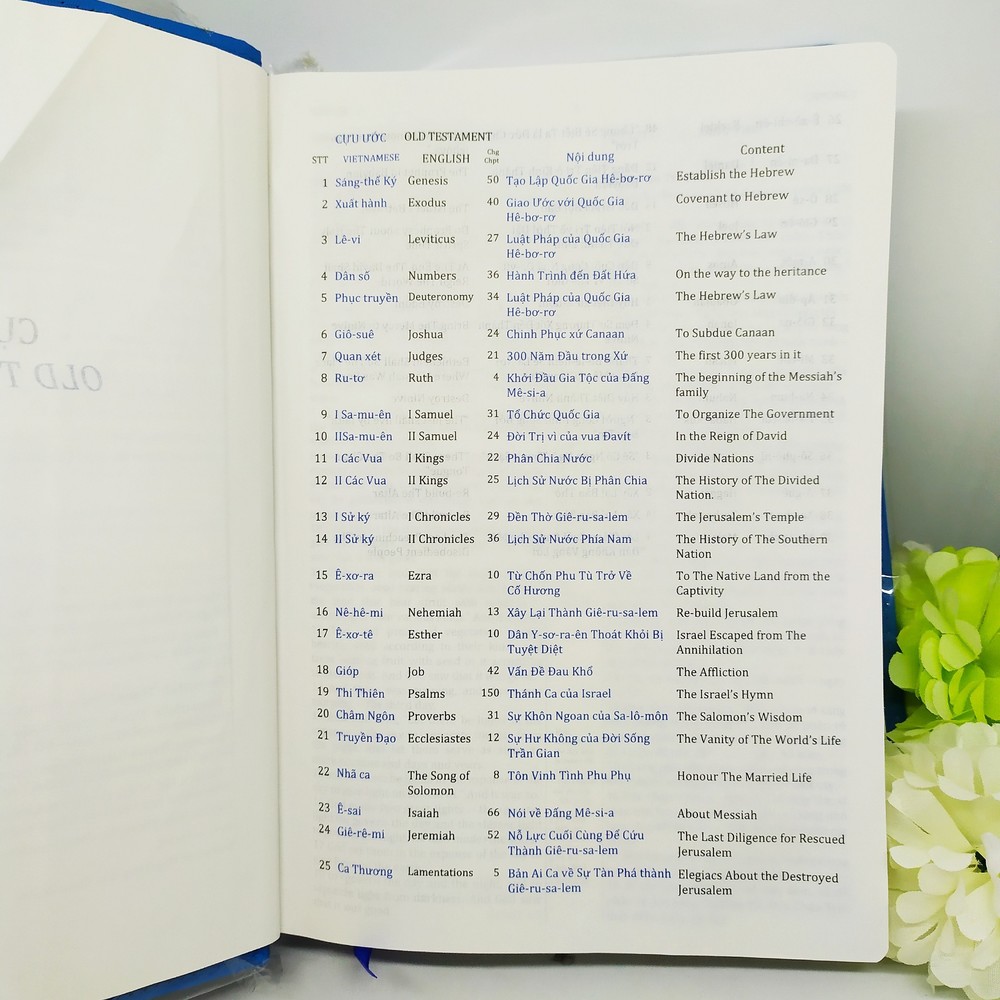 CỰU ƯỚC OLD TESTAMENT
STT VIETNAMESE ENGLISH Chg Chpt Nội dung Content
1 Sáng-thế Ký Genesis 50 Tạo Lập Quốc Gia Hê-bơ-rơ Establish the Hebrew
2 Xuất hành Exodus 40 Giao Ước với Quốc Gia Covenant to Hebrew
Hê-bơ-rơ
3 Lê-vi Leviticus 27 Luật Pháp của Quốc Gia The Hebrew's Law
Hê-bơ-rơ
4 Dân số Numbers 36 Hành Trình đến Đất Hứa On the way to the heritance
5 Phục truyền Deuteronomy 34 Luật Pháp của Quốc Gia The Hebrew's Law
Hê-bơ-rơ
6 Giô-suê Joshua 24 Chinh Phục xứ Canaan To Subdue Canaan
7 Quan xét Judges 21 300 Năm Đầu trong Xứ The first 300 years in it
8 Ru-tơ Ruth 4 Khởi Đầu Gia Tộc của Đấng The beginning of the Messiah's
Mê-si-a family
9 I Sa-mu-ên I Samuel 31 Tổ Chức Quốc Gia To Organize The Government
10 IISa-mu-ên II Samuel 24 Đời Trị vì của vua Đavít In the Reign of David
11 I Các Vua I Kings 22 Phân Chia Nước Divide Nations
12 II Các Vua II Kings 25 Lịch Sử Nước Bị Phân Chia The History of The Divided
Nation.
13 I Sử ký I Chronicles 29 Đền Thờ Giê-ru-sa-lem The Jerusalem's Temple
14 II Sử ký II Chronicles 36 Lịch Sử Nước Phía Nam The History of The Southern
Nation
15 Ê-xơ-ra Ezra 10 Từ Chốn Phu Tù Trở Về To The Native Land from the
Cố Hương Captivity
16 Nê-hê-mi Nehemiah 13 Xây Lại Thành Giê-ru-sa-lem Re-build Jerusalem
17 Ê-xơ-tê Esther 10 Dân Y-sơ-ra-ên Thoát Khỏi Bị Israel Escaped from The
Tuyệt Diệt Annihilation
18 Gióp Job 42 Vấn Đề Đau Khổ The Affliction
19 Thi Thiên Psalms 150 Thánh Ca của Israel The Israel's Hymn
20 Châm Ngôn Proverbs 31 Sự Khôn Ngoan của Sa-lô-môn The Salomon's Wisdom
21 Truyền Đạo Ecclesiastes 12 Sự Hư Không của Đời Sống The Vanity of The World's Life
Trần Gian
22 Nhã ca The Song of 8 Tôn Vinh Tình Phu Phụ Honour The Married Life
Solomon
23 Ê-sai Isaiah 66 Nói về Đấng Mê-si-a About Messiah
24 Giê-rê-mi Jeremiah 52 Nỗ Lực Cuối Cùng Để Cứu The Last Diligence for Rescued
Thành Giê-ru-sa-lem Jerusalem
25 Ca Thương Lamentations 5 Bản Ai Ca về Sự Tàn Phá thành Elegiacs About the Destroyed
Giê-ru-sa-lem Jerusalem